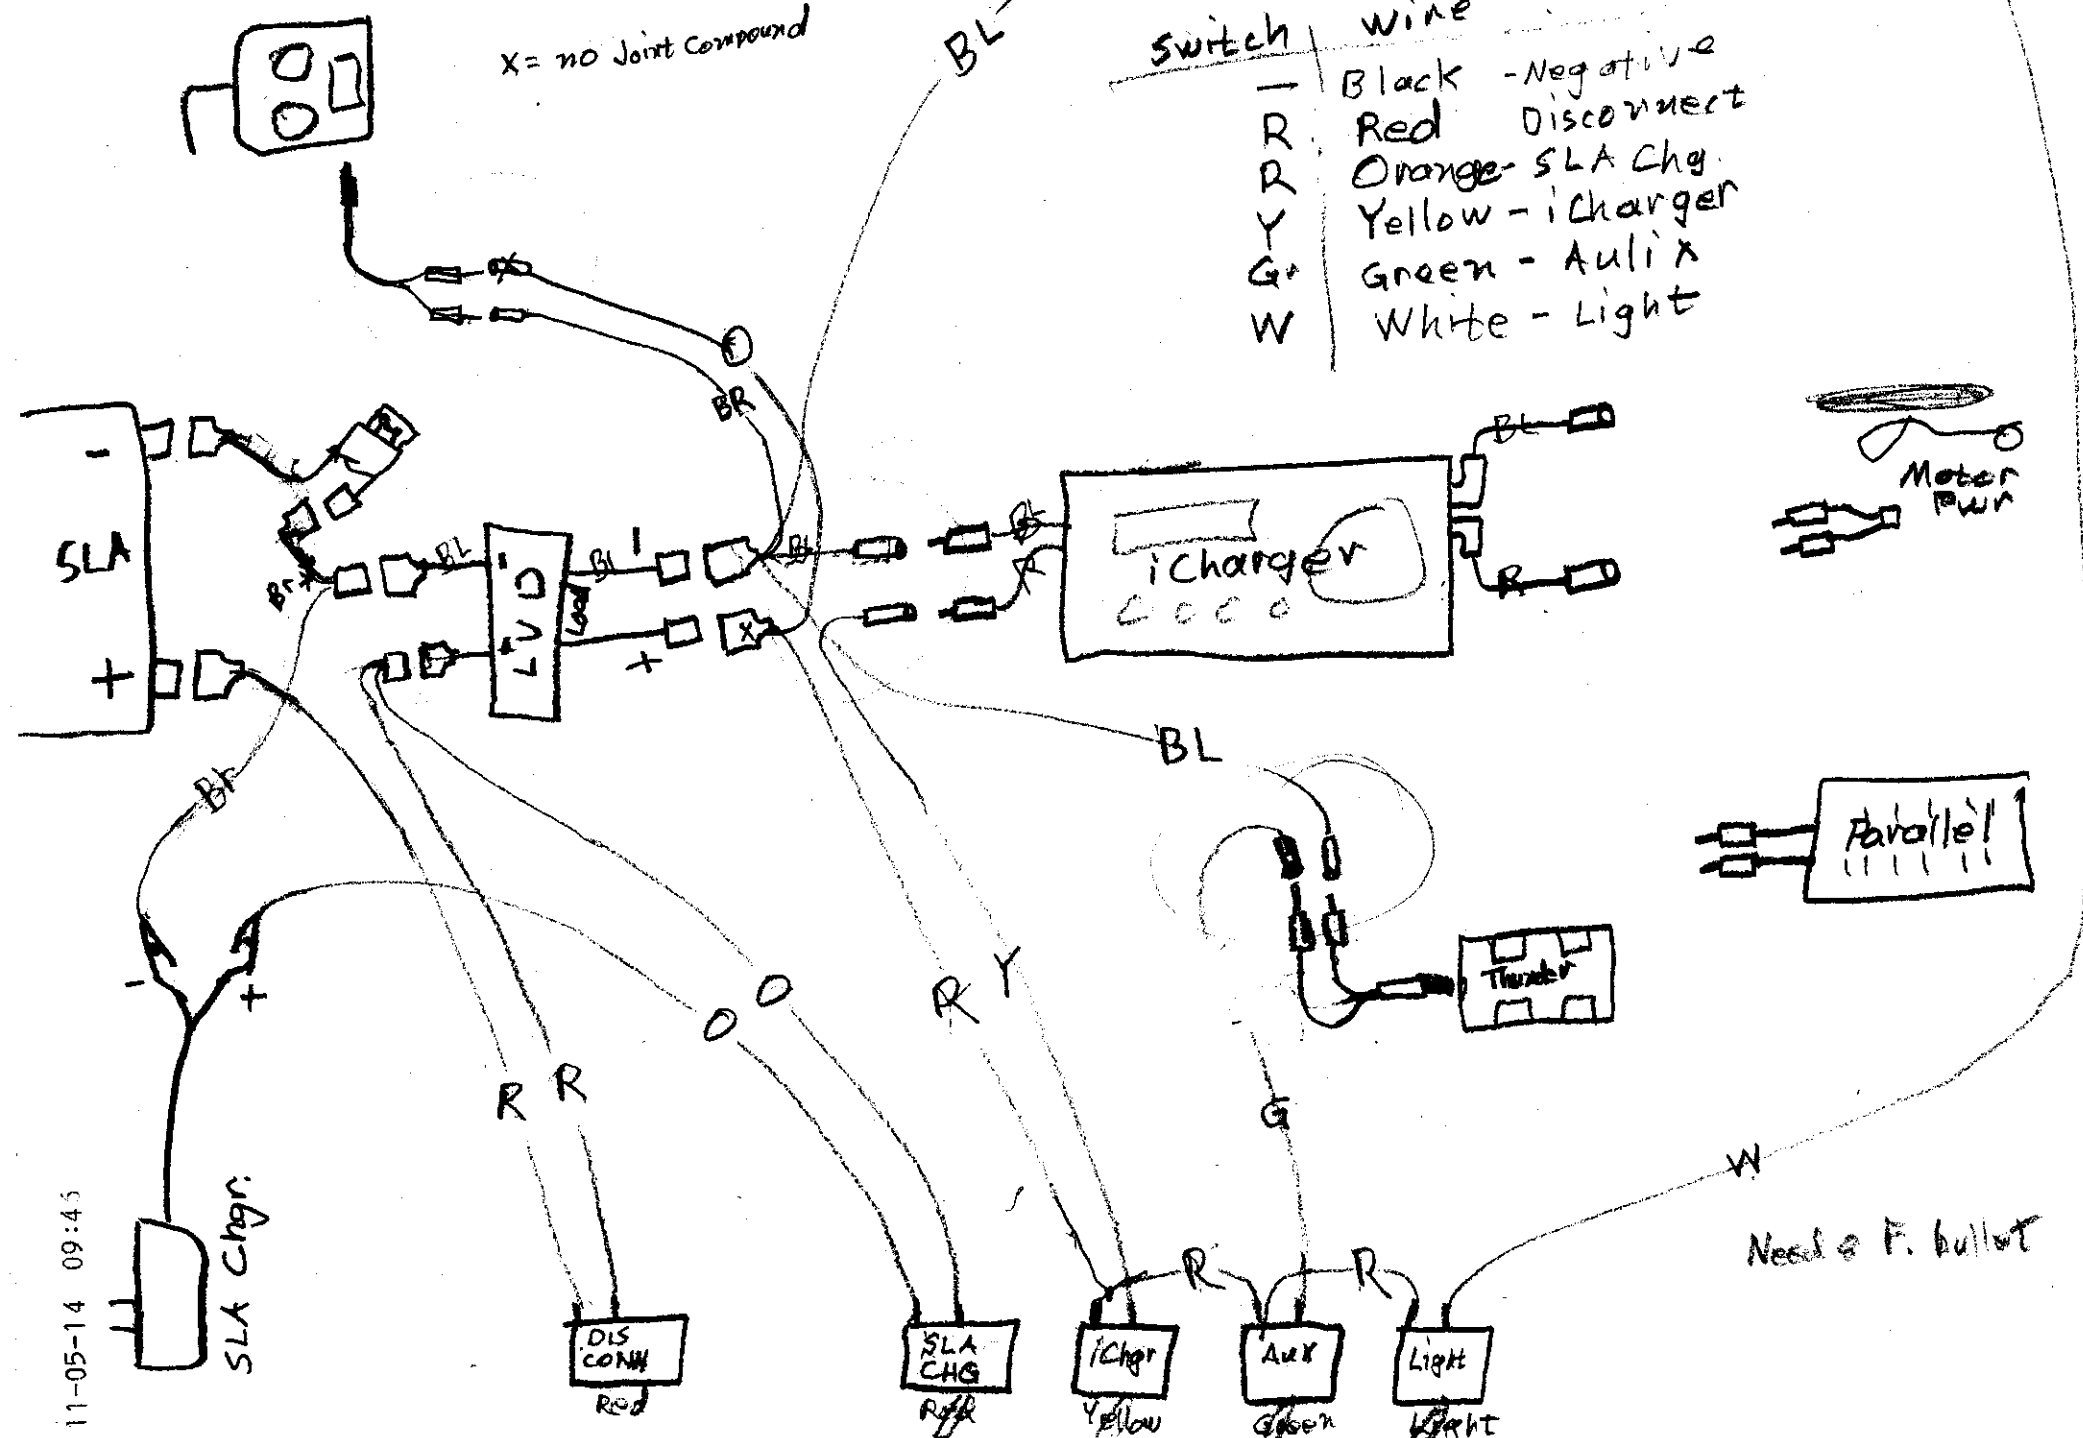 X = no Joint Compound
BL
Switch | Wire
— | Black - Negative
R Red Disconnect
R Orange - SLA Chg.
Y Yellow - iCharger
Gr Green - Aulix
W White - Light
O
BR
BL
-
SLA
+
Br
BL
-
LVD
+
Load
BL
-
+
X
BL
BL
R
iCharger
BL
R
Motor
Pwr
Br
BL
Parallel
Thunder
-
+
R
R
O
O
R
Y
G
W
Need a F. bullet
SLA Chgr.
11-05-14 09:45
R
R
DIS
CONN
Red
SLA
CHG
iChgr
Yellow
Aux
Green
Light